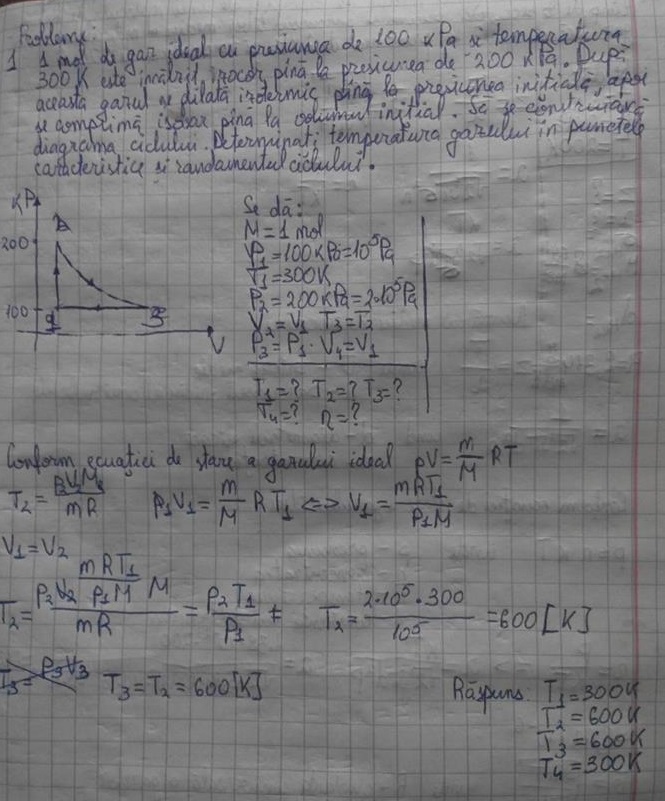 Probleme:
1 1 mol de gaz ideal cu presiunea de 100 kPa și temperatura
300 K este încălzit izocor pînă la presiunea de 200 kPa. După
aceasta gazul se dilată izotermic pînă la presiunea inițială, apoi
se comprimă izobar pînă la volumul inițial. Să se construiască
diagrama ciclului. Determinați temperatura gazului în punctele
caracteristice și randamentul ciclului.
kPa
200
100
1
2
3
V
Se dă:
M=1 mol
P1=100KPa=10⁵Pa
T1=300K
P2=200KPa=2·10⁵Pa
V2=V1 T3=T2
P3=P1· V4=V1
T1=? T2=? T3=?
T4=? η=?
Conform ecuației de stare a gazului ideal pV=m/M RT
T2=p2V2M/mR p1V1=m/M RT1 <=> V1=mRT1/p1M
V1=V2
T2=p2V2 mRT1/p1M M/mR=p2T1/p1 T2=2·10⁵·300/10⁵=600[K]
T3=p3V3 T3=T2=600[K]
Răspuns T1=300K
T2=600K
T3=600K
T4=300K